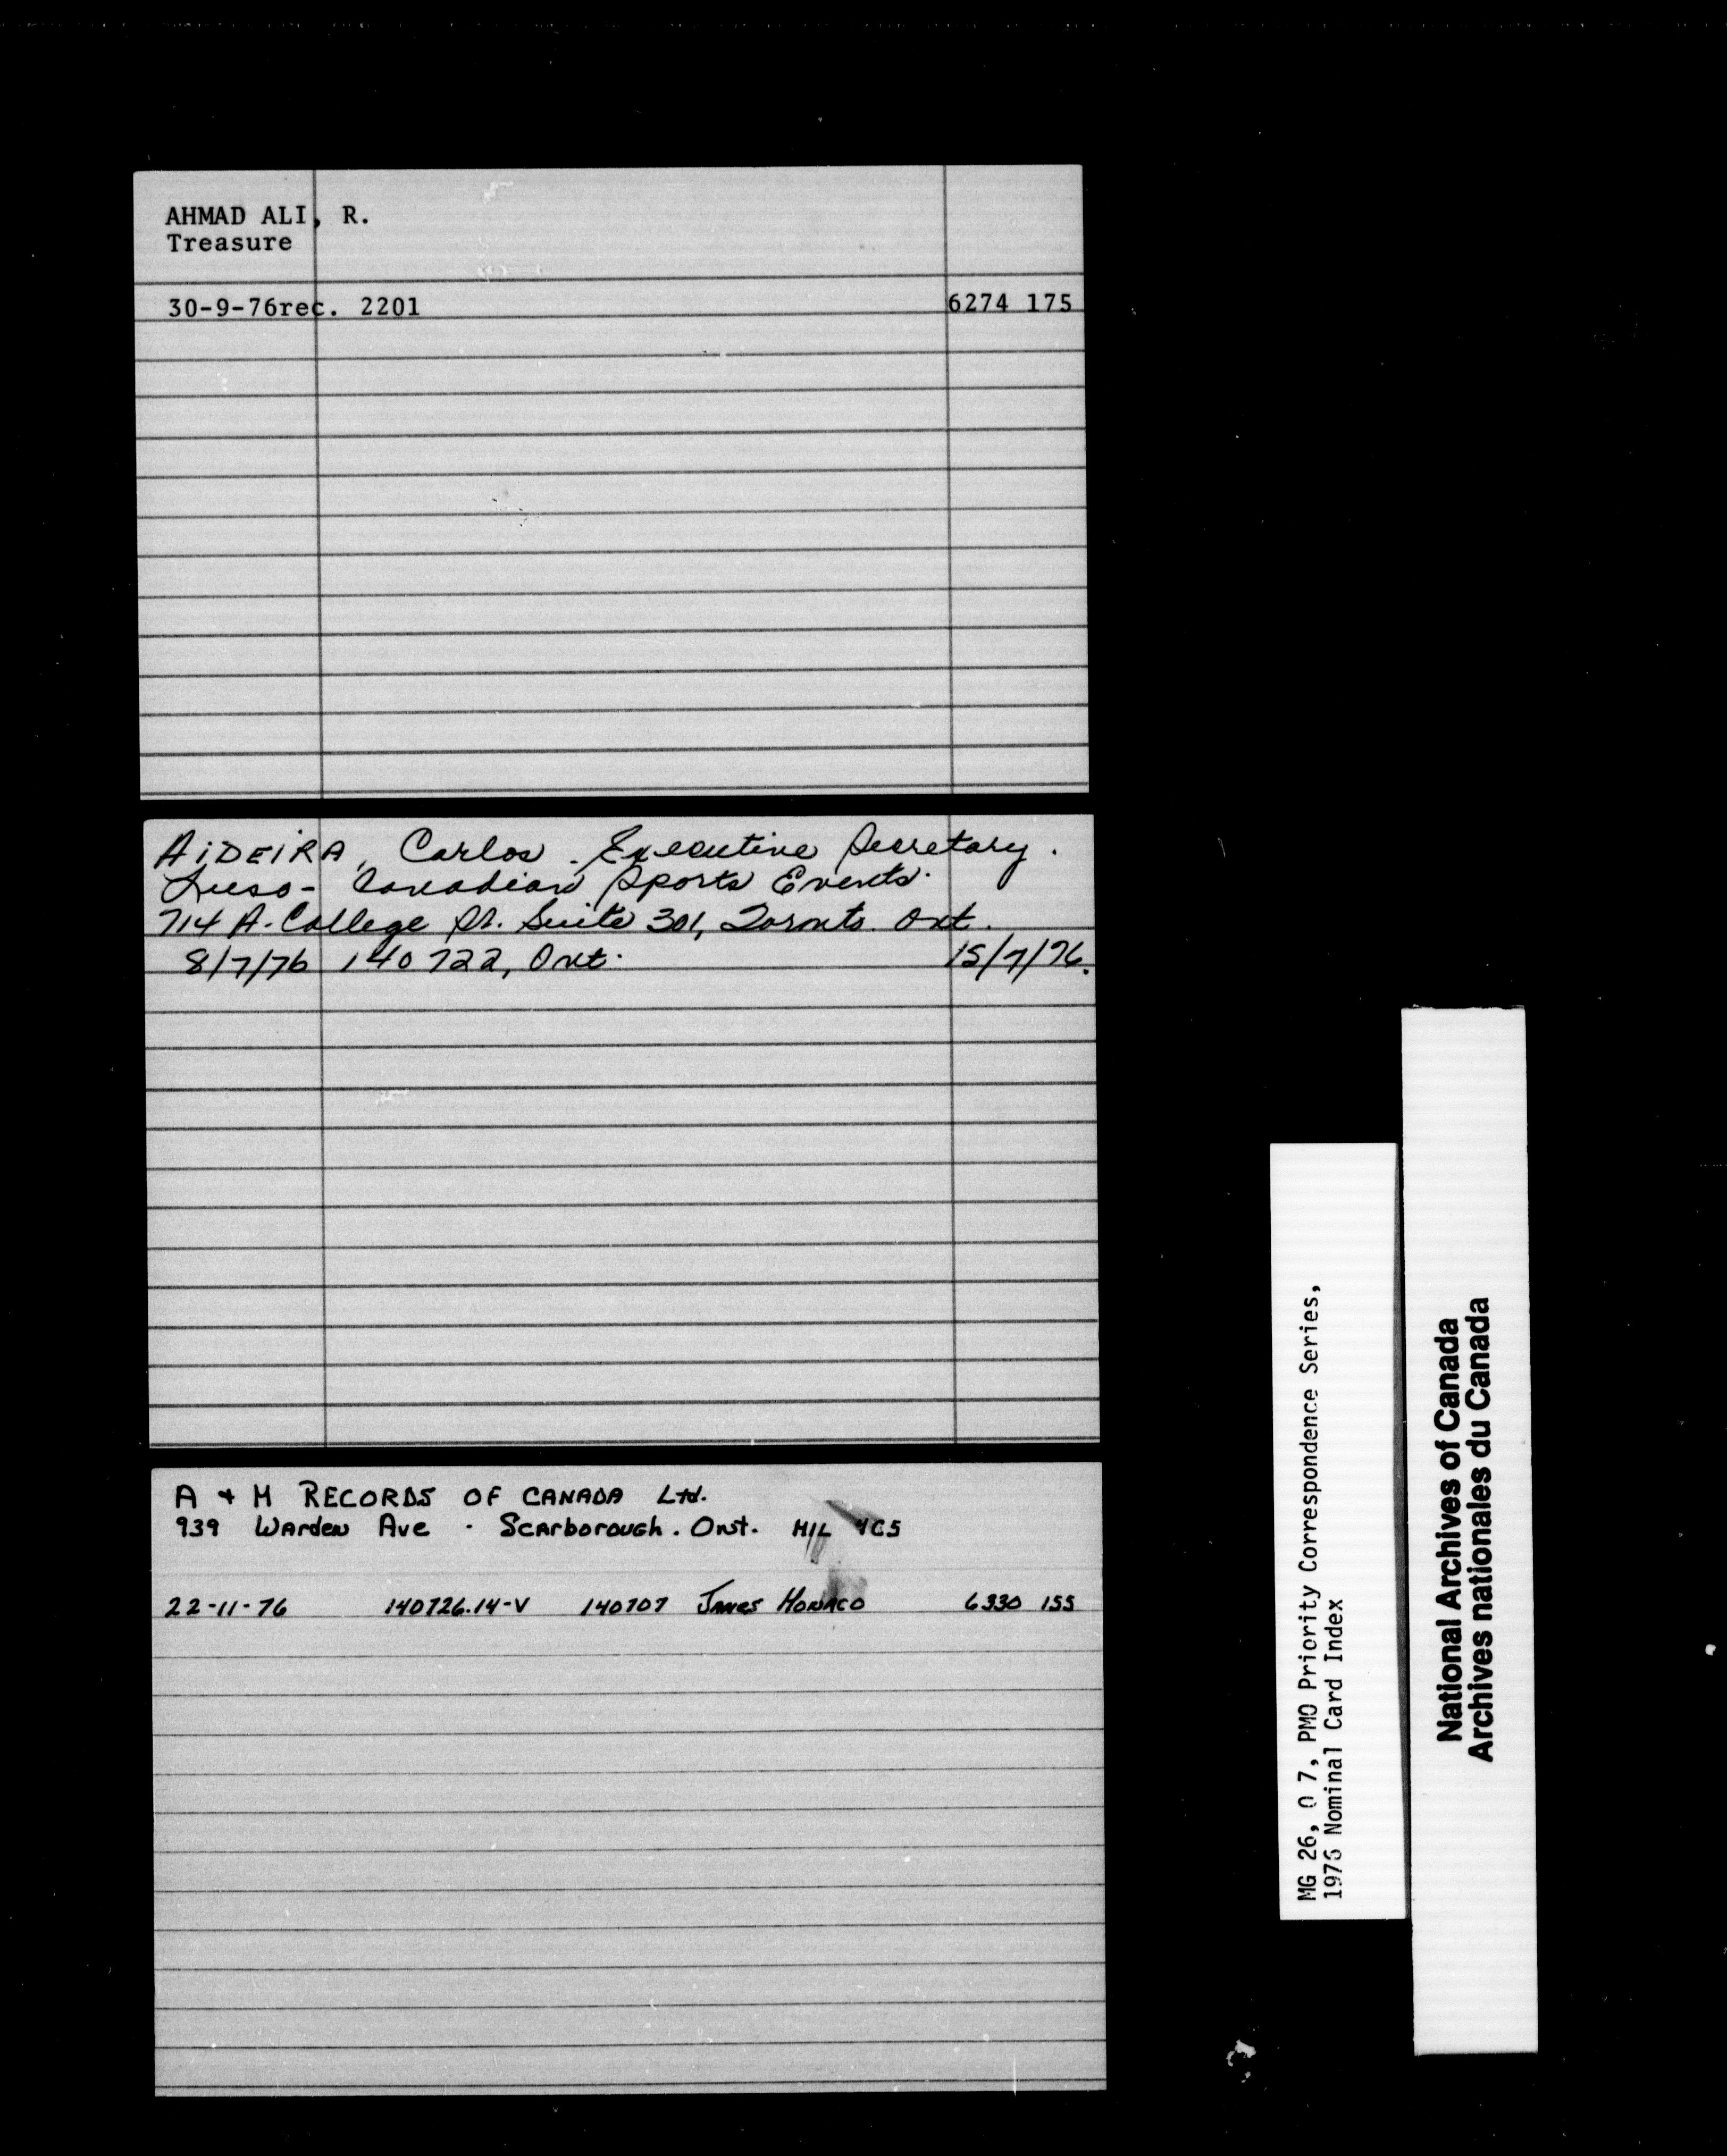 AHMAD ALI, R.
Treasure
30-9-76rec. 2201 6274 175
AiDEiRA, Carlos. Executive Secretary.
Luso-Canadian Sports Events.
714 A. College St. Suite 301, Toronto. Ont.
8/7/76 140722, Ont. 15/7/76.
A & M RECORDS OF CANADA Ltd.
939 Warden Ave. Scarborough. Ont. M1L 4C5
22-11-76 140726.14-V 140707 James Monaco 6330 155
MG 26, O 7, PMO Priority Correspondence Series,
1976 Nominal Card Index
National Archives of Canada
Archives nationales du Canada